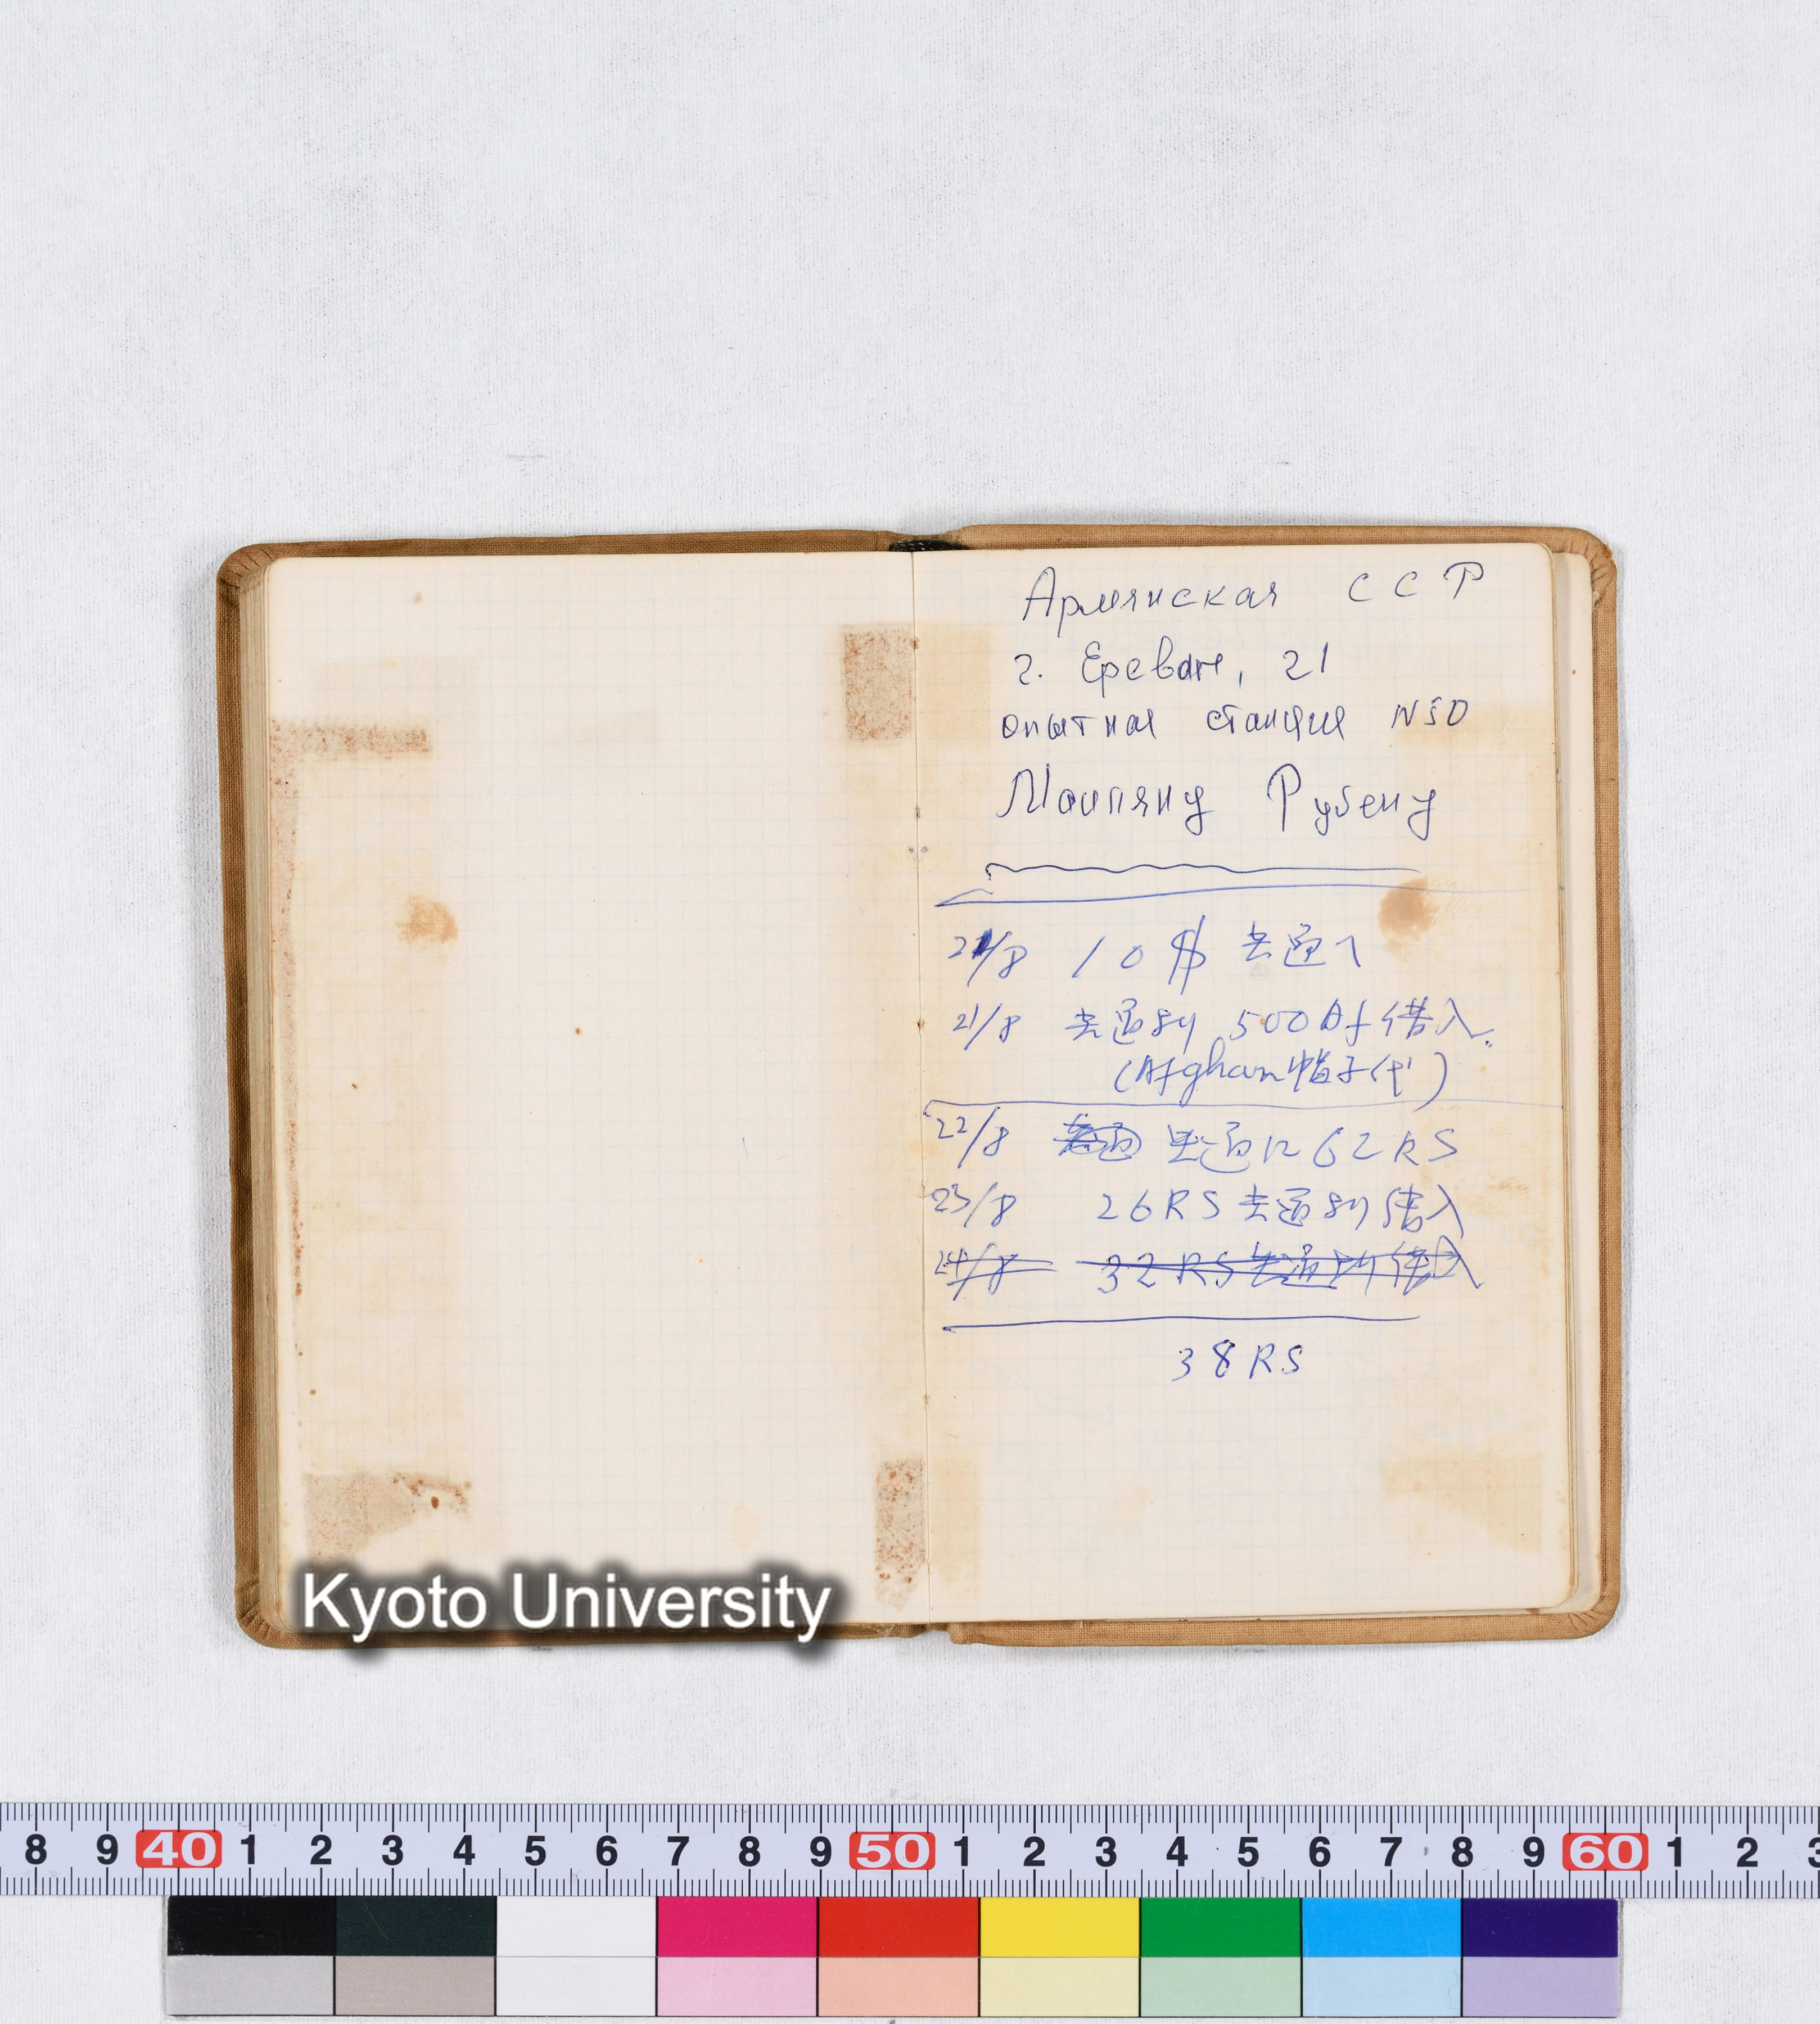 Армянская ССР
г. Ереван, 21
опытная станция N50
Маипяну Рубену
21/8 10 $ 共通へ
21/8 共通ヨリ 500 Af 借入.
(Afghan 帽子代)
22/8 共通に 62 RS
23/8 26 RS 共通ヨリ 借入
24/8 32 RS 共通ヨリ 借入
38 RS
Kyoto University
8 9 40 1 2 3 4 5 6 7 8 9 50 1 2 3 4 5 6 7 8 9 60 1 2 3